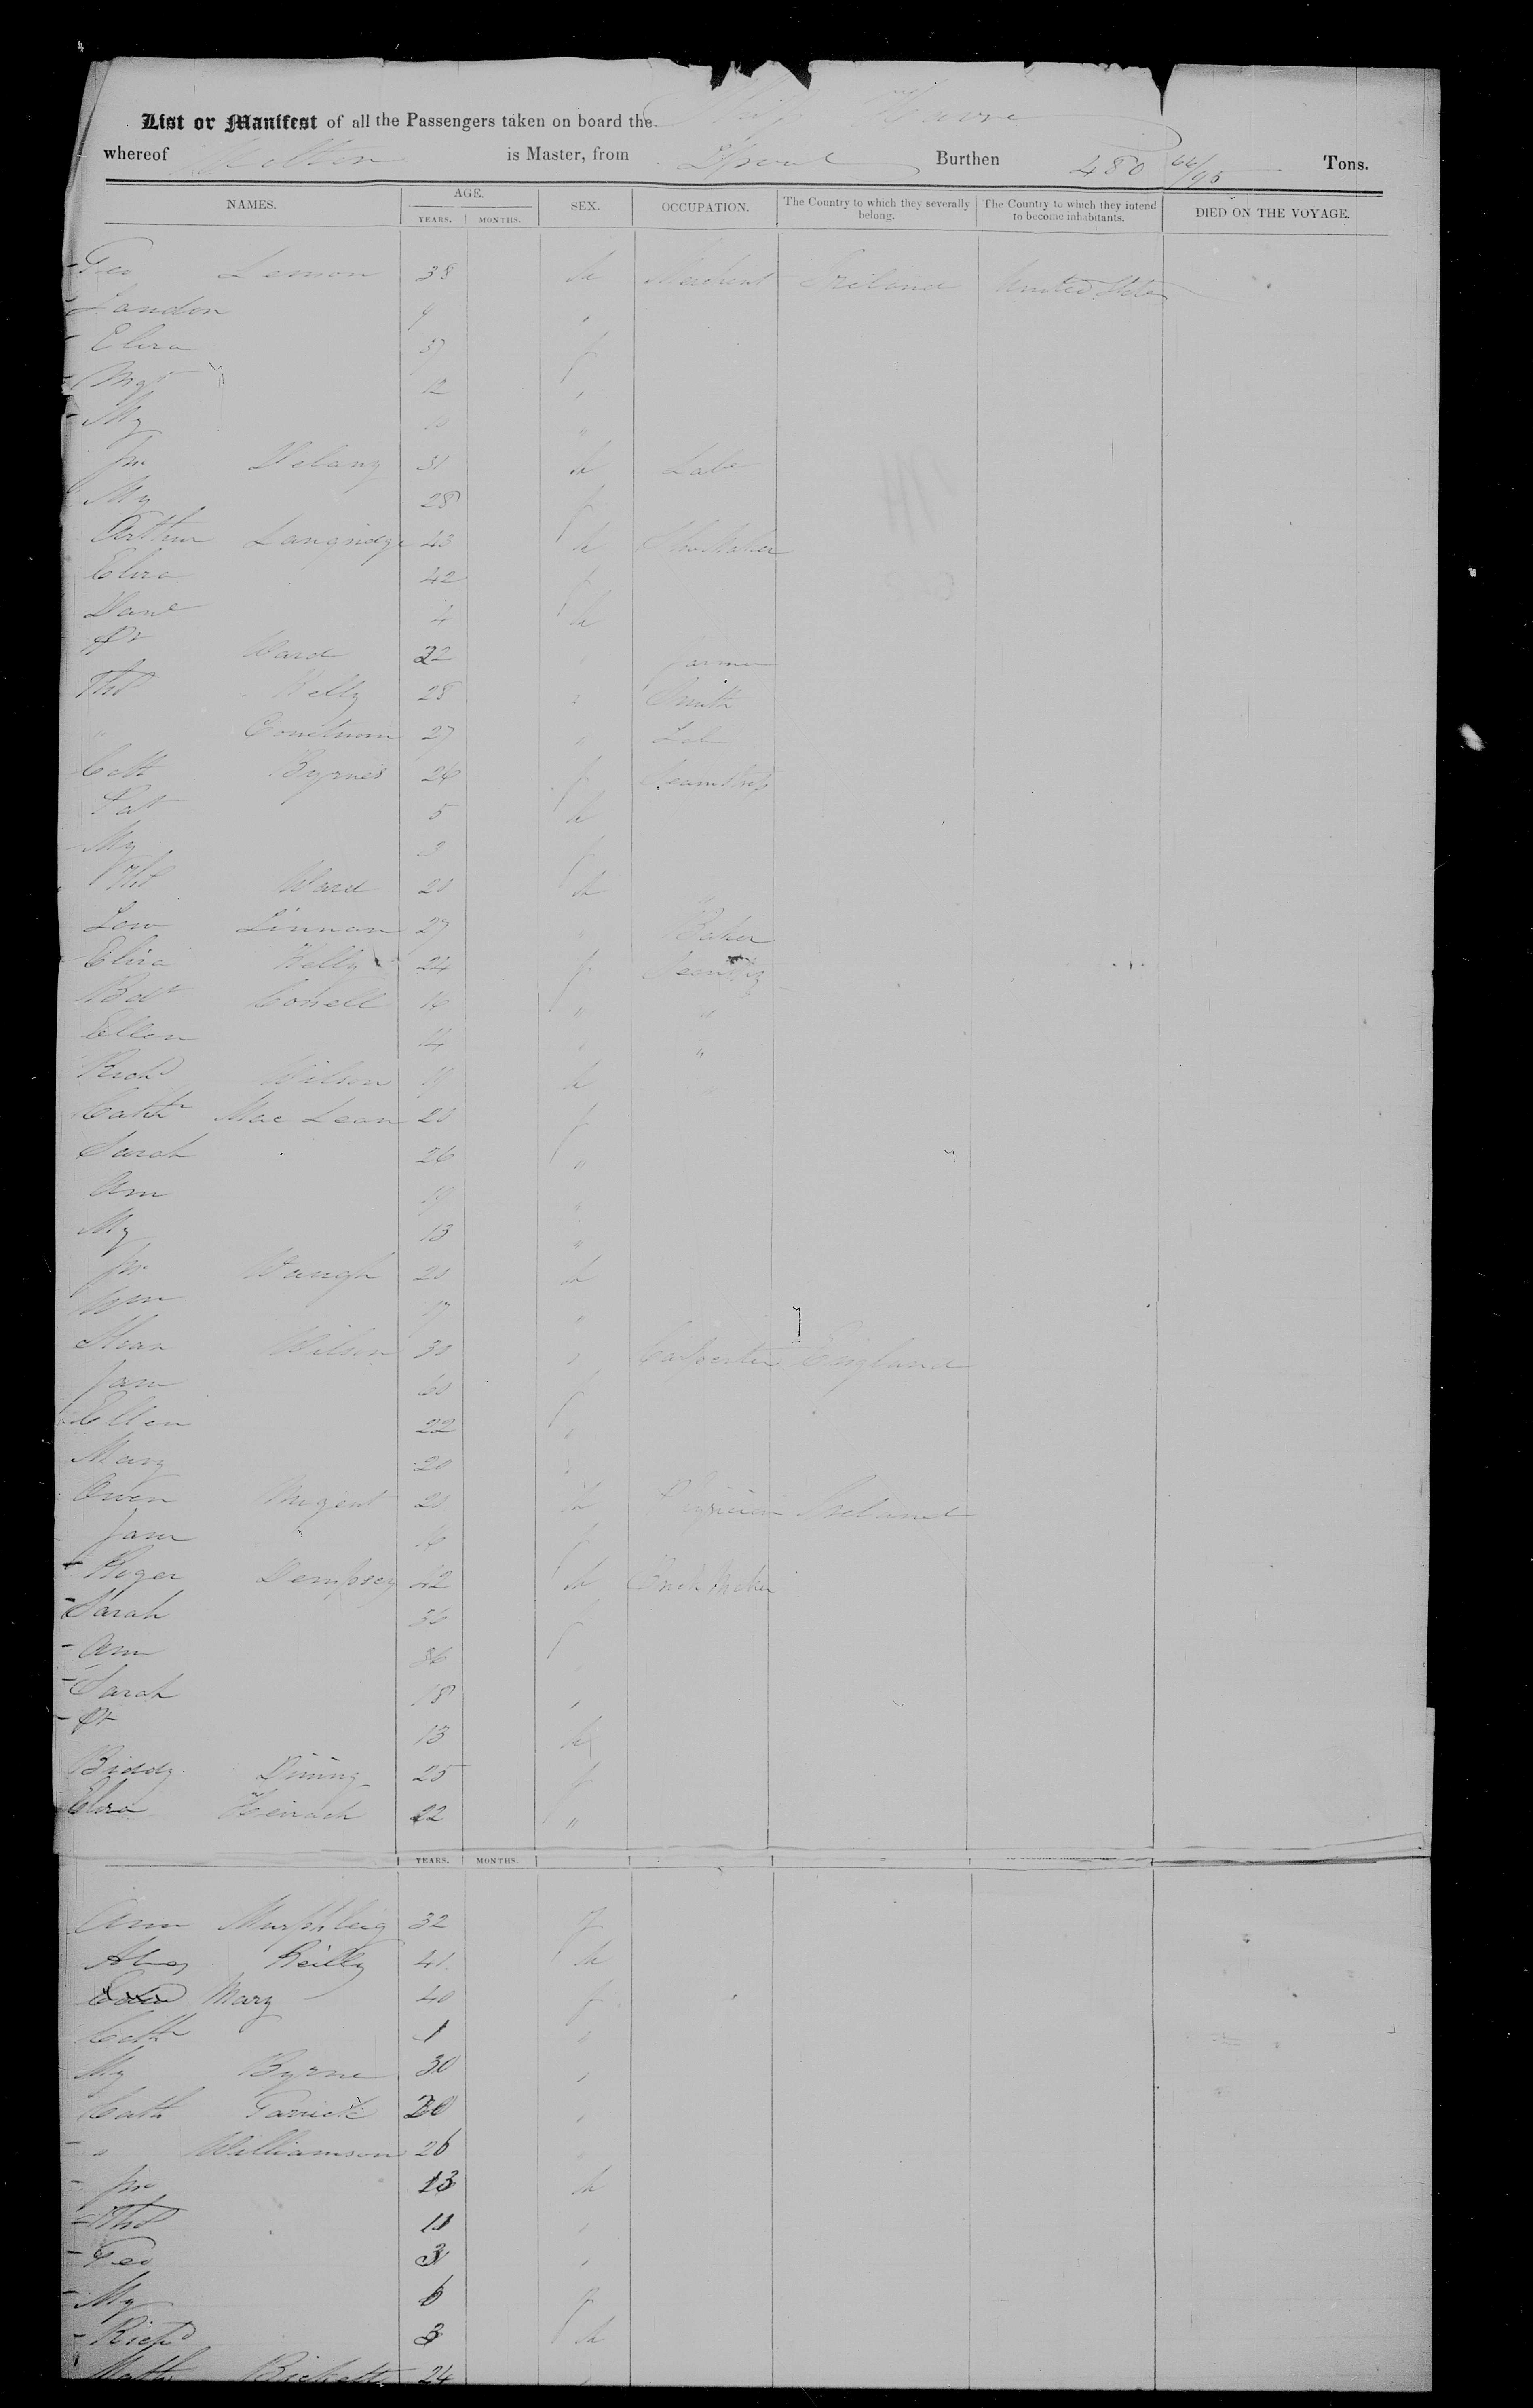 List or Manifest of all the Passengers taken on board the Ship Havre
whereof is Master, from Lpool Burthen 480 66/95 Tons.
NAMES. AGE. YEARS. MONTHS. SEX. OCCUPATION. The Country to which they severally belong. The Country to which they intend to become inhabitants. DIED ON THE VOYAGE.
Geo Lemon 38 M Merchant Ireland United States
Landon 9 "
Eliza 37 f
Mgt 12 "
My 10 "
Jno Delany 31 M Labr
My 28 f
Arthur Langridge 43 M Shoemaker
Eliza 42 f
Danl 4 M
Pt Ward 22 " farmer
Thos Kelly 28 " Smith
" 27 " Lab
Cath Byrnes 26 f Seamstress
Pat 5 M
My 3 f
Thos Ward 20 M
Law Linnan 27 " Baker
Eliza Kelly 24 f
Bdt Conell 16 " "
Ellen 14 " "
Richd Wilson 19 M
Cathe Mac Lean 20 f
Sarah 26 "
Ann 19 "
My 13 "
Jno Waugh 20 M
Wm 17 "
Wilson 30 " Carpenter England
Jane 60 f
Ellen 22 "
Mary 20 "
Owen Nugent 20 M Physician Ireland
Jane 16 f
Roger Dempsey 42 M
Sarah 36 f
Ann 36 "
Sarah 18 "
Pt 13 M
Biddy 25 f
Eliza 22 "
YEARS. MONTHS.
Ann 32 f
Reilly 41 M
Mary 40 f
Cath 1 "
My Byrne 30 "
Cath 20 "
" Williamson 26 "
Jno 13 M
Thos 11 "
Geo 3 "
My 6 f
Richd 3 M
Math 24 "